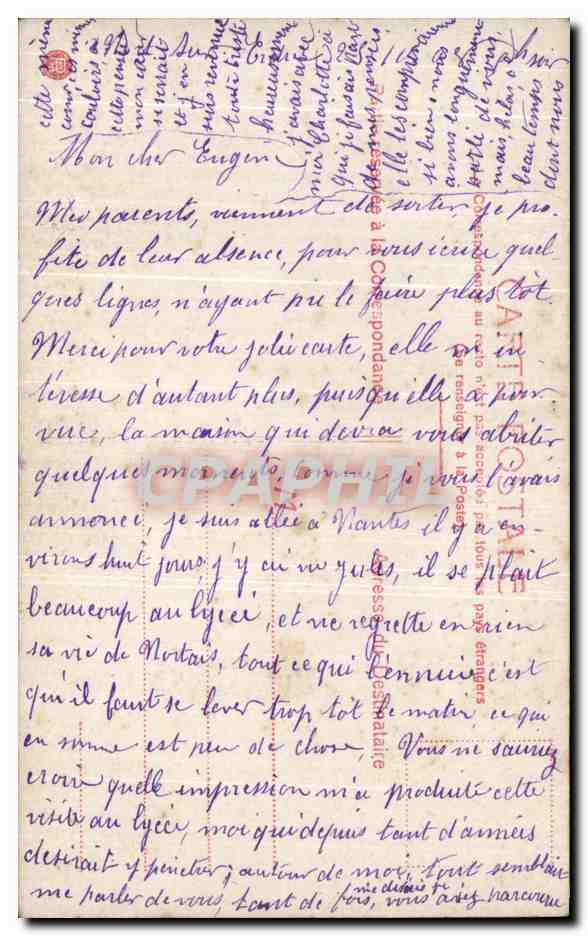 Nort sur Erdre
Mon cher Eugène
Mes parents, viennent de sortir, je pro-
fite de leur absence, pour vous écrire quel-
ques lignes, n'ayant pu le faire plus tôt.
Merci pour votre jolie carte, elle m'in
téresse d'autant plus, puisqu'elle a pour
vue, la maison qui devra vous abriter
quelques moments, comme je vous l'avais
annoncé, je suis allée à Nantes il y a en-
virons huit jours, j'y ai vu Jules, il se plait
beaucoup au lycée, et ne regrette en rien
sa vie de Nortais, tout ce qui l'ennuie c'est
qu'il faut se lever trop tôt le matin ce qui
en somme est peu de chose, Vous ne sauriez
croire quelle impression m'a produite cette
visite au lycée, moi qui depuis tant d'années
desirait y pénétrer; autour de moi, tout semblait
me parler de vous, tant de fois, me disais-je vous avez parcouru
cette même
cour, ces mêmes
couloirs à
cette pensée
mon cœur
se serrait
et j'en
suis revenue
toute triste
heureusement
j'avais avec
moi Charlotte à
qui je faisais part
de mes pensées
elle les comprenait
si bien, nous
avons longuement
parlé de vous
mais, hélas
beau temps
dont nous
CARTE POSTALE
La Correspondance au recto n'est pas acceptée par tous les pays étrangers
(Se renseigner à la Poste)
Partie réservée à la Correspondance
Adresse du Destinataire
CPAPHIL